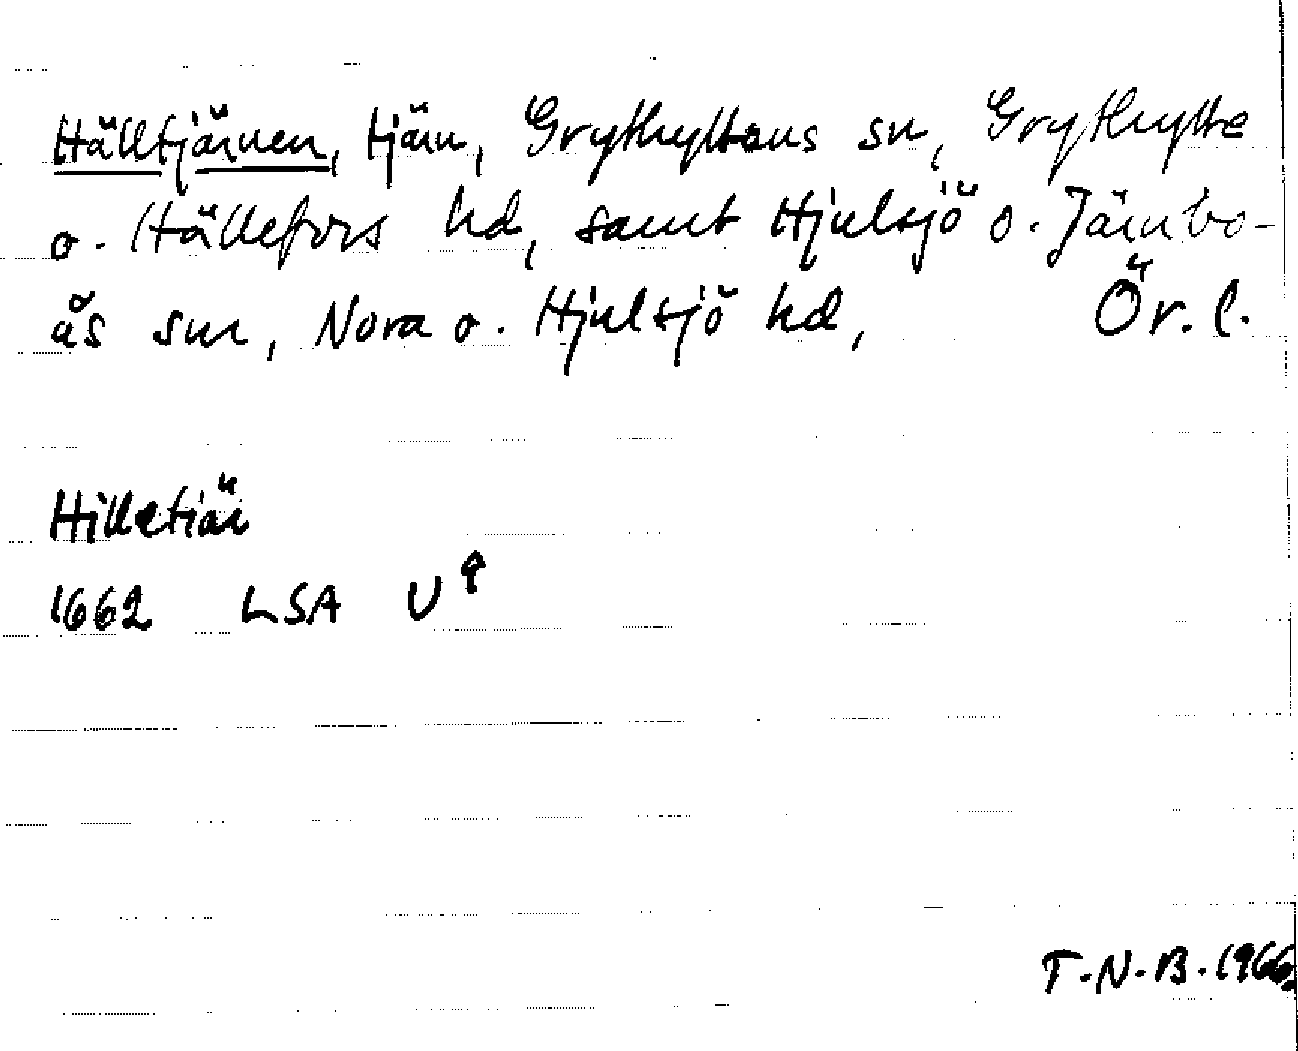 Hälltjärnen, tjärn, Grythyttans sn, Grythytte
o. Hällefors hd, samt Hjulsjö o. Järnbo-
ås snr, Nora o. Hjulsjö hd, Ör. l.
Hilletiär
1662 LSA U
T.N.B. 1966